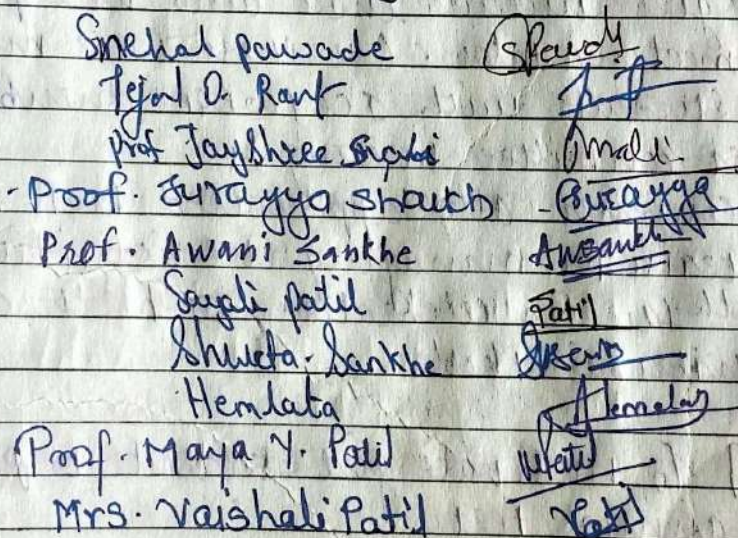 Snehal pawade
Tejal D. Raut
Prof Jayshree mali Jmali
Proof. Surayya shaikh Surayya
Prof. Awani Sankhe Awsankhe
Sayali patil Patil
Shweta. Sankhe
Hemlata Hemlata
Prof. Maya Y. Patil
Mrs. Vaishali Patil